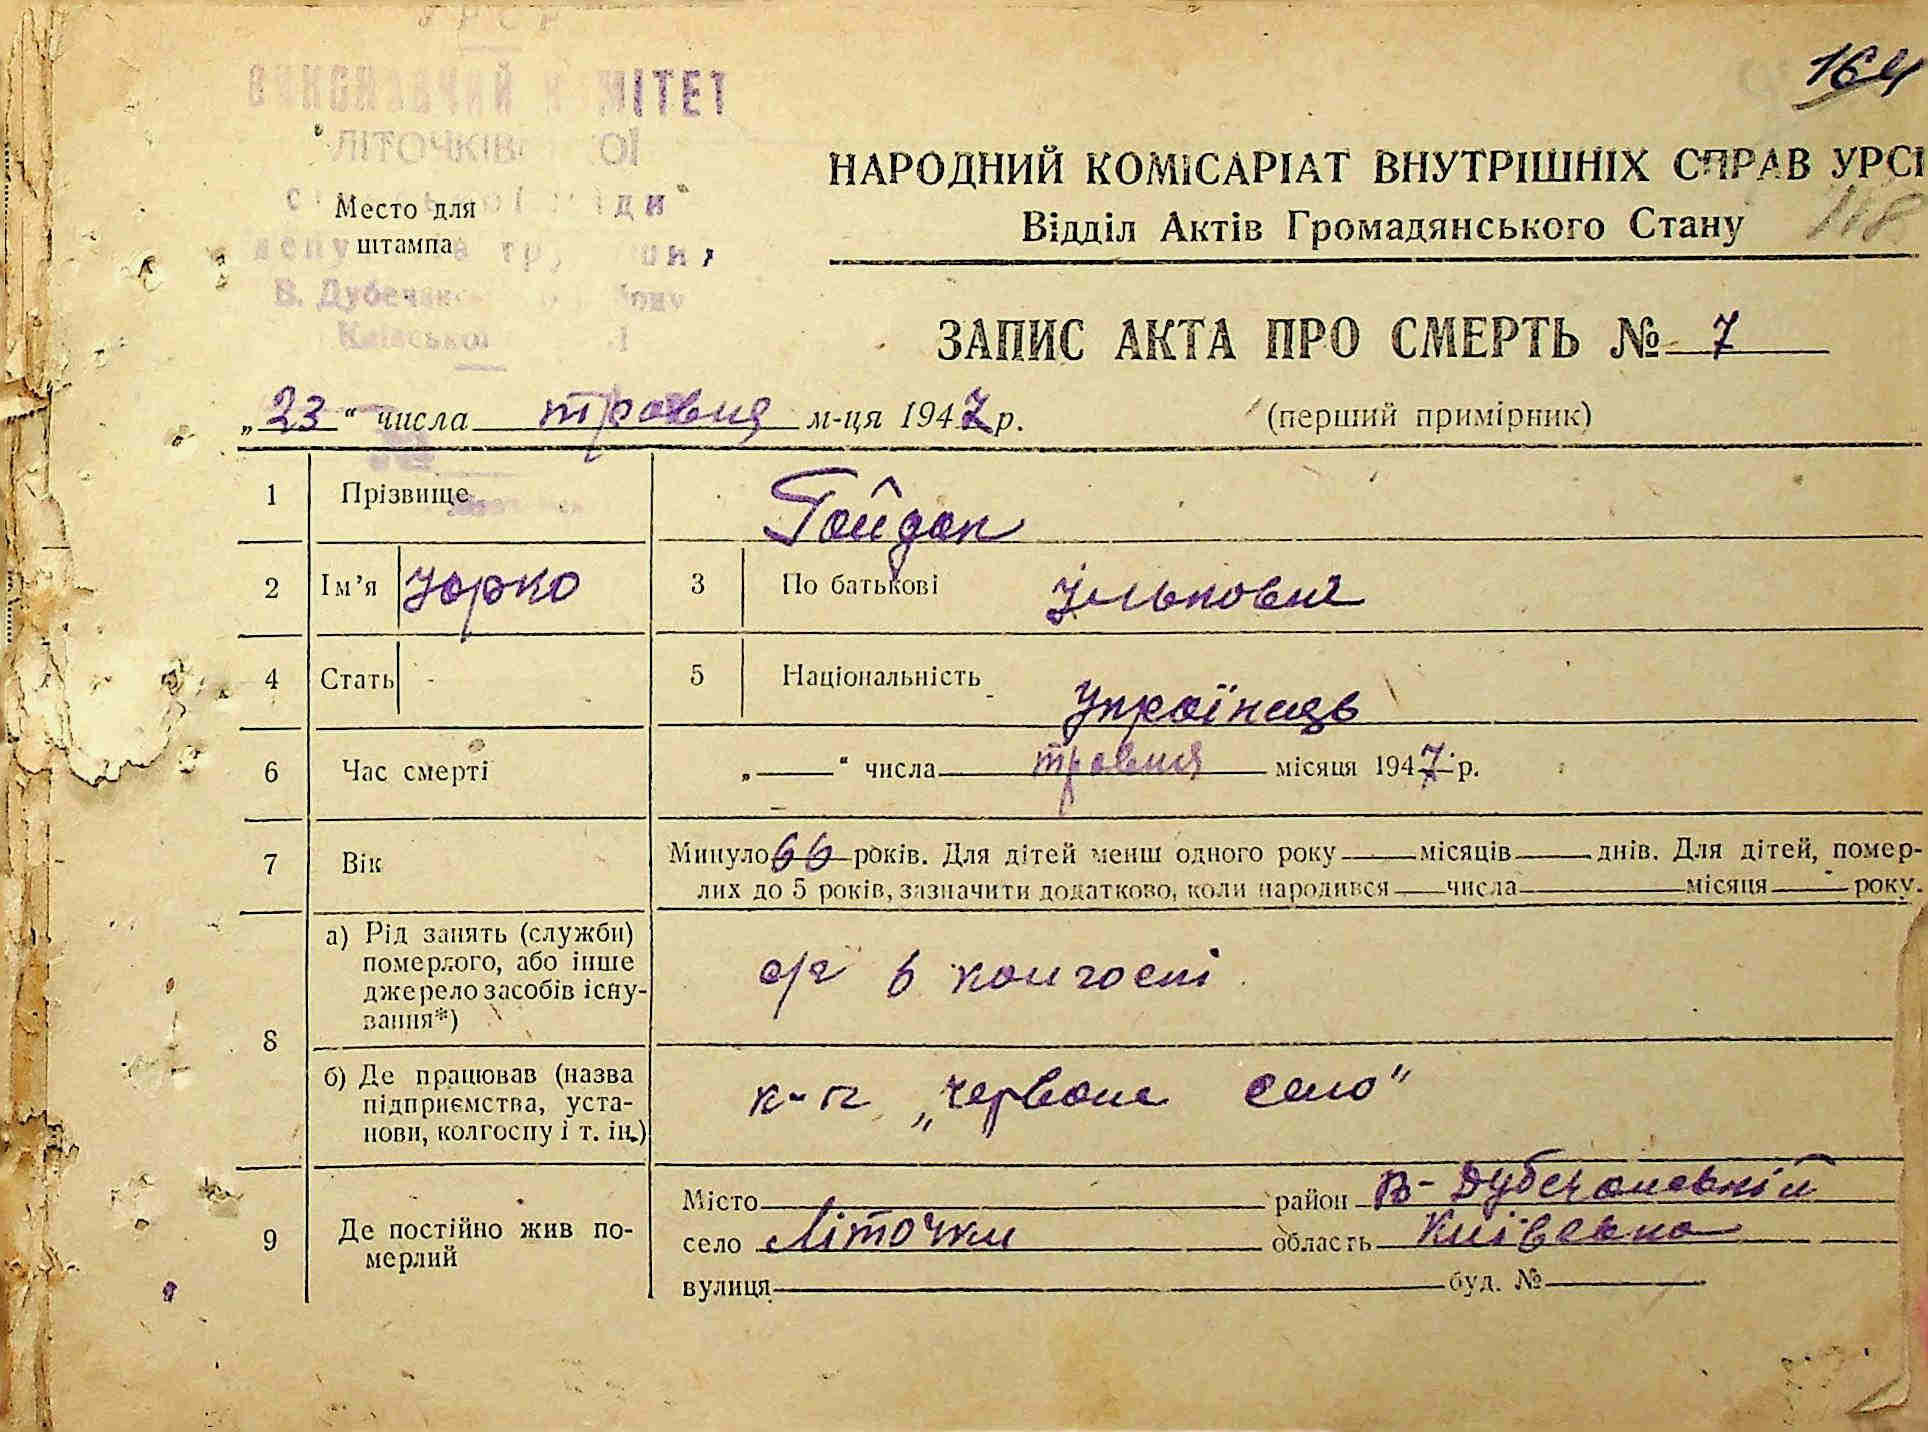 УРСР
164
ВИКОНАВЧИЙ КОМІТЕТ
ЛІТОЧКІВСЬКОЇ
НАРОДНИЙ КОМІСАРІАТ ВНУТРІШНІХ СПРАВ УРСР
118
Место для
штампа
Відділ Актів Громадянського Стану
В. Дубечанського району
Київської
ЗАПИС АКТА ПРО СМЕРТЬ № 7
„23“ числа травня м-ця 1947 р.
(перший примірник)
1 Прізвище Гайдак
2 Ім’я Юрко 3 По батькові
4 Стать 5 Національність Українець
6 Час смерті „ “ числа травня місяця 1947 р.
7 Вік Минуло 66 років. Для дітей менш одного року місяців днів. Для дітей, помер-
лих до 5 років, зазначити додатково, коли народився числа місяця року.
8 а) Рід занять (служби)
померлого, або інше
джерело засобів існу-
вання*)
с/г в колгоспі
б) Де працював (назва
підприємства, уста-
нови, колгоспу і т. ін.)
к-п „Червоне село“
9 Де постійно жив по-
мерлий
Місто район В-Дубечанський
село Літочки область Київська
вулиця буд. №